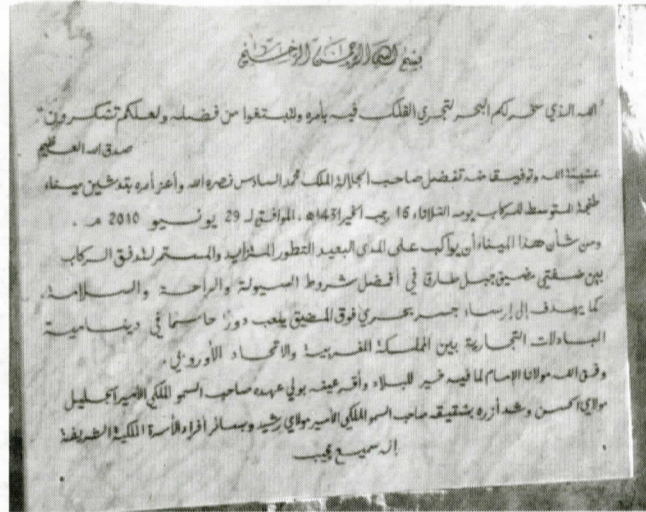 بسم الله الرحمن الرحيم
"الله الذي سخر لكم البحر لتجري الفلك فيه بأمره ولتبتغوا من فضله ولعلكم تشكرون"
صدق الله العظيم
بمشيئة الله وتوفيق منه تفضل صاحب الجلالة الملك محمد السادس نصره الله وأعز أمره بتدشين ميناء
طنجة المتوسط للركاب يومه الثلاثاء 16 رجب الخير 1431هـ. الموافق لـ 29 يونسيو 2010 مـ.
ومن شأن هذا الميناء أن يواكب على المدى البعيد التطور المتزايد والمستمر لتدفق الركاب
بين ضفتي مضيق جبل طارق في أفضل شروط السيولة والراحة والسلامة.
كما يهدف إلى إرساء جسر بحري فوق المضيق يلعب دورا حاسما في دينامية
المبادلات التجارية بين المملكة المغربية والاتحاد الأوروبي.
وفق الله مولانا الإمام لما فيه خير للبلاد وأقر عينه بولي عهده صاحب السمو الملكي الأمير الجليل
مولاي الحسن وشد أزره بشقيقه صاحب السمو الملكي الأمير مولاي رشيد وبسائر أفراد الأسرة الملكية الشريفة
إنه سميع مجيب